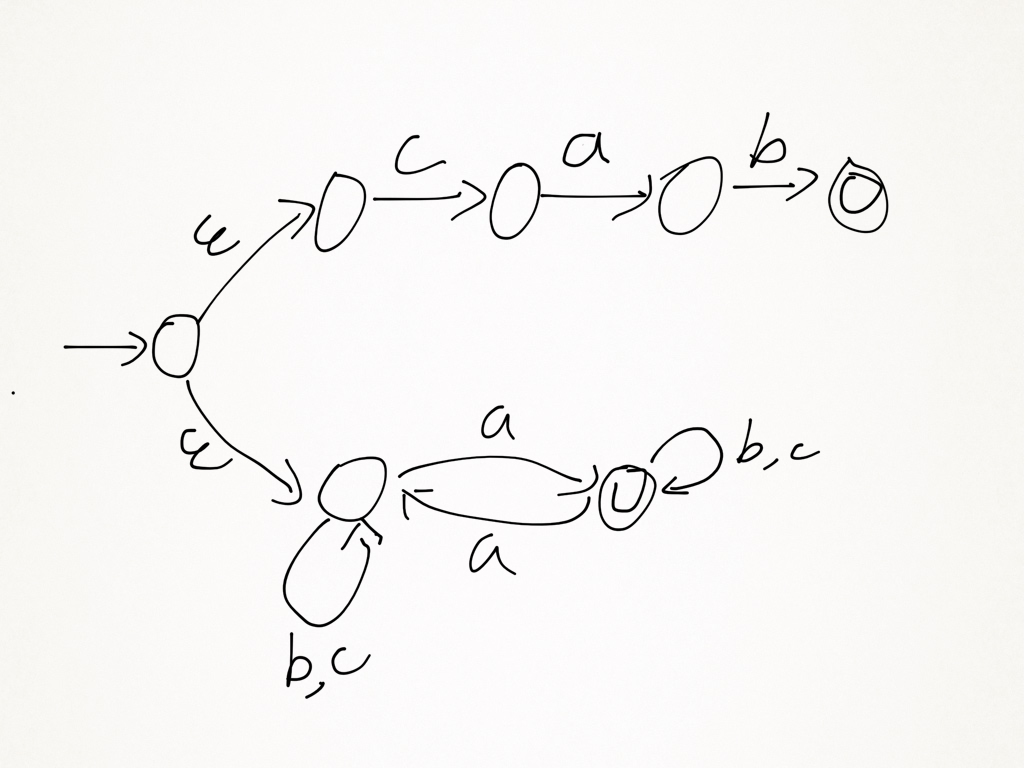 c a b
ε
ε
a
b, c
a
b, c